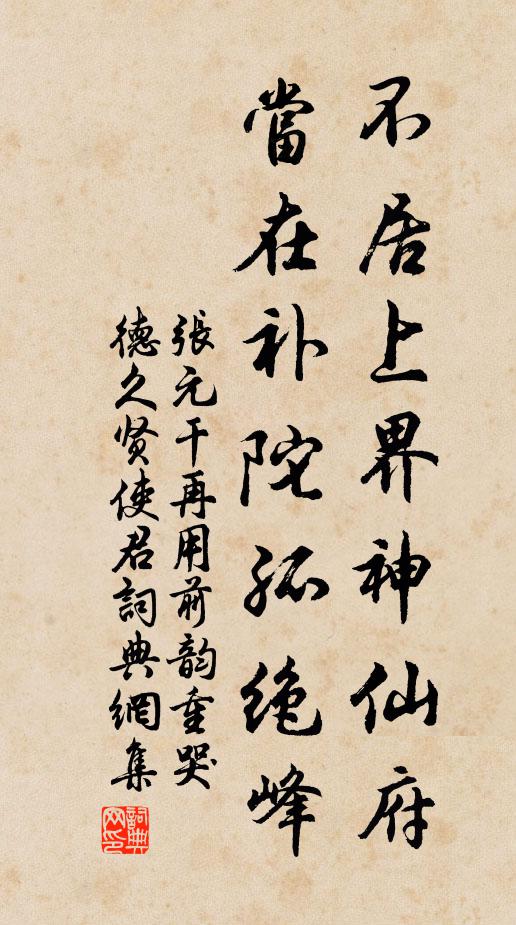 不居上界神仙府
當在补陀孤绝峰
張元干再用前韵重哭
德久贤使君詞典網集
詞典网印